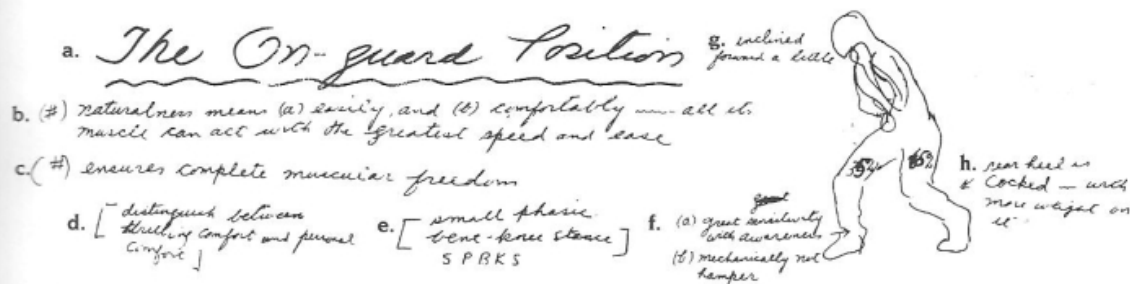 a. The On-guard Position
b. (#) naturalness means (a) easily, and (b) comfortably — all its
muscle can act with the greatest speed and ease
c. (#) ensures complete muscular freedom
d. [distinguish between
comfort and personal
comfort]
e. [small phasic
bent-knee stance]
S P B K S
f. (a) great sensitivity
with awareness
(b) mechanically not
hamper
g. inclined
forward a little
h. rear heel is
cocked — with
more weight on
it